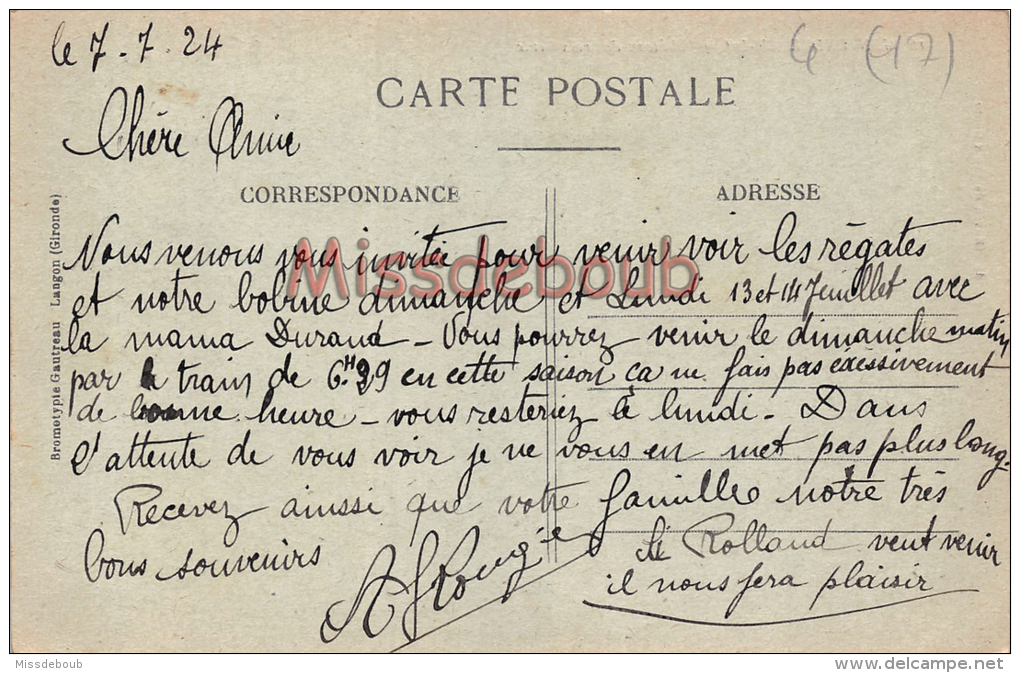 le 7-7-24
6 (17)
CARTE POSTALE
Chère Amie
CORRESPONDANCE
ADRESSE
Bromotypie Gautreau Langon (Gironde)
Missdeboub
Nous venons vous invitée pour venir voir les régates
et notre bobine dimanche et Lundi 13 et 14 Juillet avec
la mama Durand - Vous pourrez venir le dimanche matin
par le train de 6.H39 en cette saison ça ne fais pas exessivement
de bonne heure - vous resteriez le lundi - Dans
l'attente de vous voir je ne vous en met pas plus long.
Recevez ainssi que votre famille notre très
bons souvenirs
Si Rolland veut venir
il nous fera plaisir
Missdeboub
http://www.delcampe.net